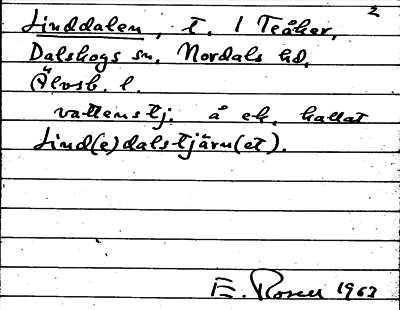 2
Linddalen, t. 1 Teåker,
Dalskogs sn. Nordals hd.
Älvsb. l.
vattenstj. å ek. kallat
Lind(e)dalstjärn(et).
E. Rosell 1963